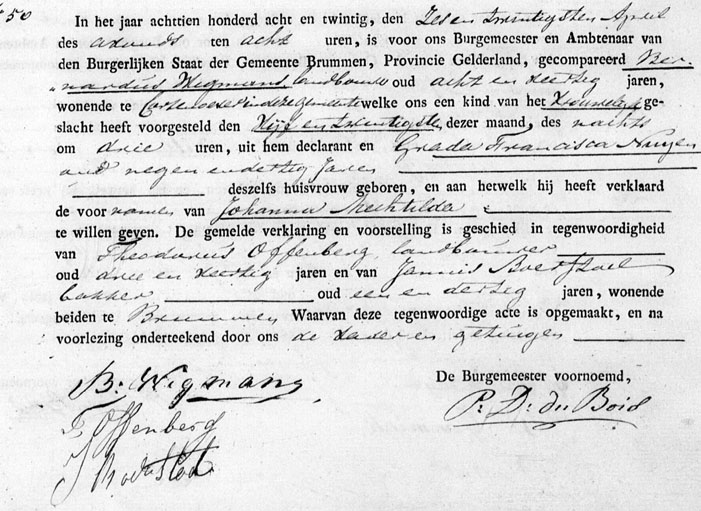 50
In het jaar achttien honderd acht en twintig, den Zes en twintigsten April
des avonds ten acht uren, is voor ons Burgemeester en Ambtenaar van
den Burgerlijken Staat der Gemeente Brummen, Provincie Gelderland, gecompareerd Ber-
nardus Wegmans landbouwer oud acht en veertig jaren,
wonende te in deze gemeente welke ons een kind van het Vrouwelijk ge-
slacht heeft voorgesteld den Vijf en twintigsten dezer maand, des nachts
om drie uren, uit hem declarant en Grada Francisca
oud negen en dertig jaren
deszelfs huisvrouw geboren, en aan hetwelk hij heeft verklaard
de voor namen van Johanna Mechtilda
te willen geven. De gemelde verklaring en voorstelling is geschied in tegenwoordigheid
van Theodorus Offenberg, landbouwer
oud drie en veertig jaren en van Jannis
bakker oud een en dertig jaren, wonende
beiden te Brummen Waarvan deze tegenwoordige acte is opgemaakt, en na
voorlezing onderteekend door ons de vader en getuigen
De Burgemeester voornoemd,
B. Wigmans
P. D. du Bois
T Offenberg
J